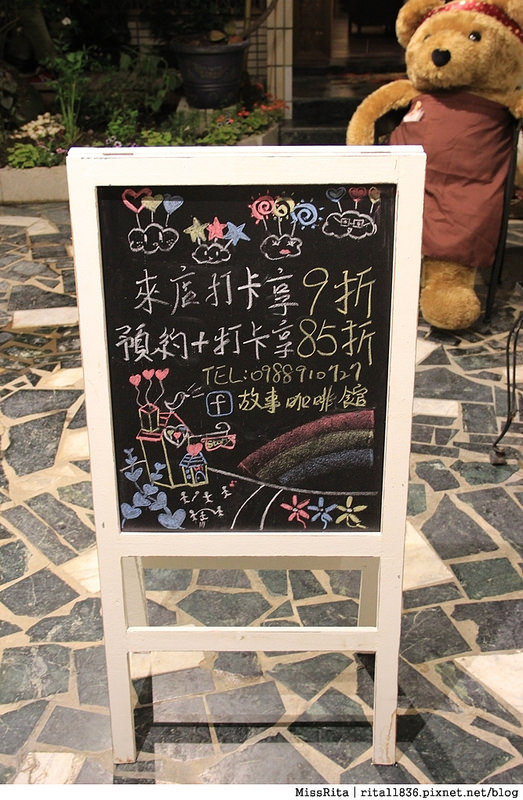 來店打卡享9折
預約+打卡享85折
TEL:0988910727
f 故事咖啡館
MissRita | rita11836.pixnet.net/blog